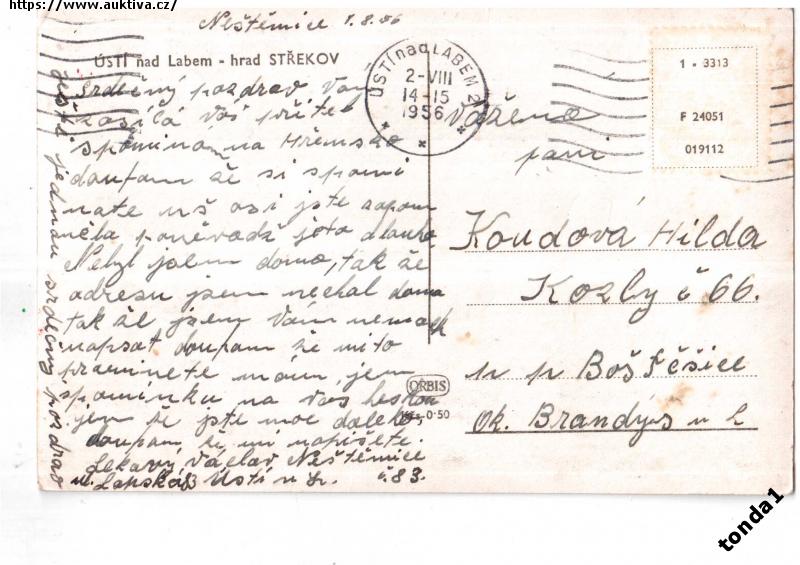 https://www.auktiva.cz/
Neštěmice 1.8.56
ÚSTÍ nad Labem - hrad STŘEKOV
Srdečný pozdrav Vám
zasílá Váš přítel
spomínám na Hřensko
doufam že si spomi
nate uš asi jste zapom
něla poněvadž jeto dlouho
Nebyl jsem doma, tak že
adresu jsem nechal doma
tak že jsem Vám nemoh
napsat doufam že mito
prominete mám jen
spominku na Vás heskou
jen že jste moc daleko
doufam že mi napišete.
Václav Neštěmice
Ústí n L. č.83.
ještě jednou srdečný pozdrav
ÚSTÍ nad LABEM 2
2-VIII
14-15
1956
1 - 3313
F 24051
019112
Vážená
paní
Koudová Hilda
Kozly č 66.
p Boštěšice
ok. Brandýs n L
ORBIS
0·50
tonda1